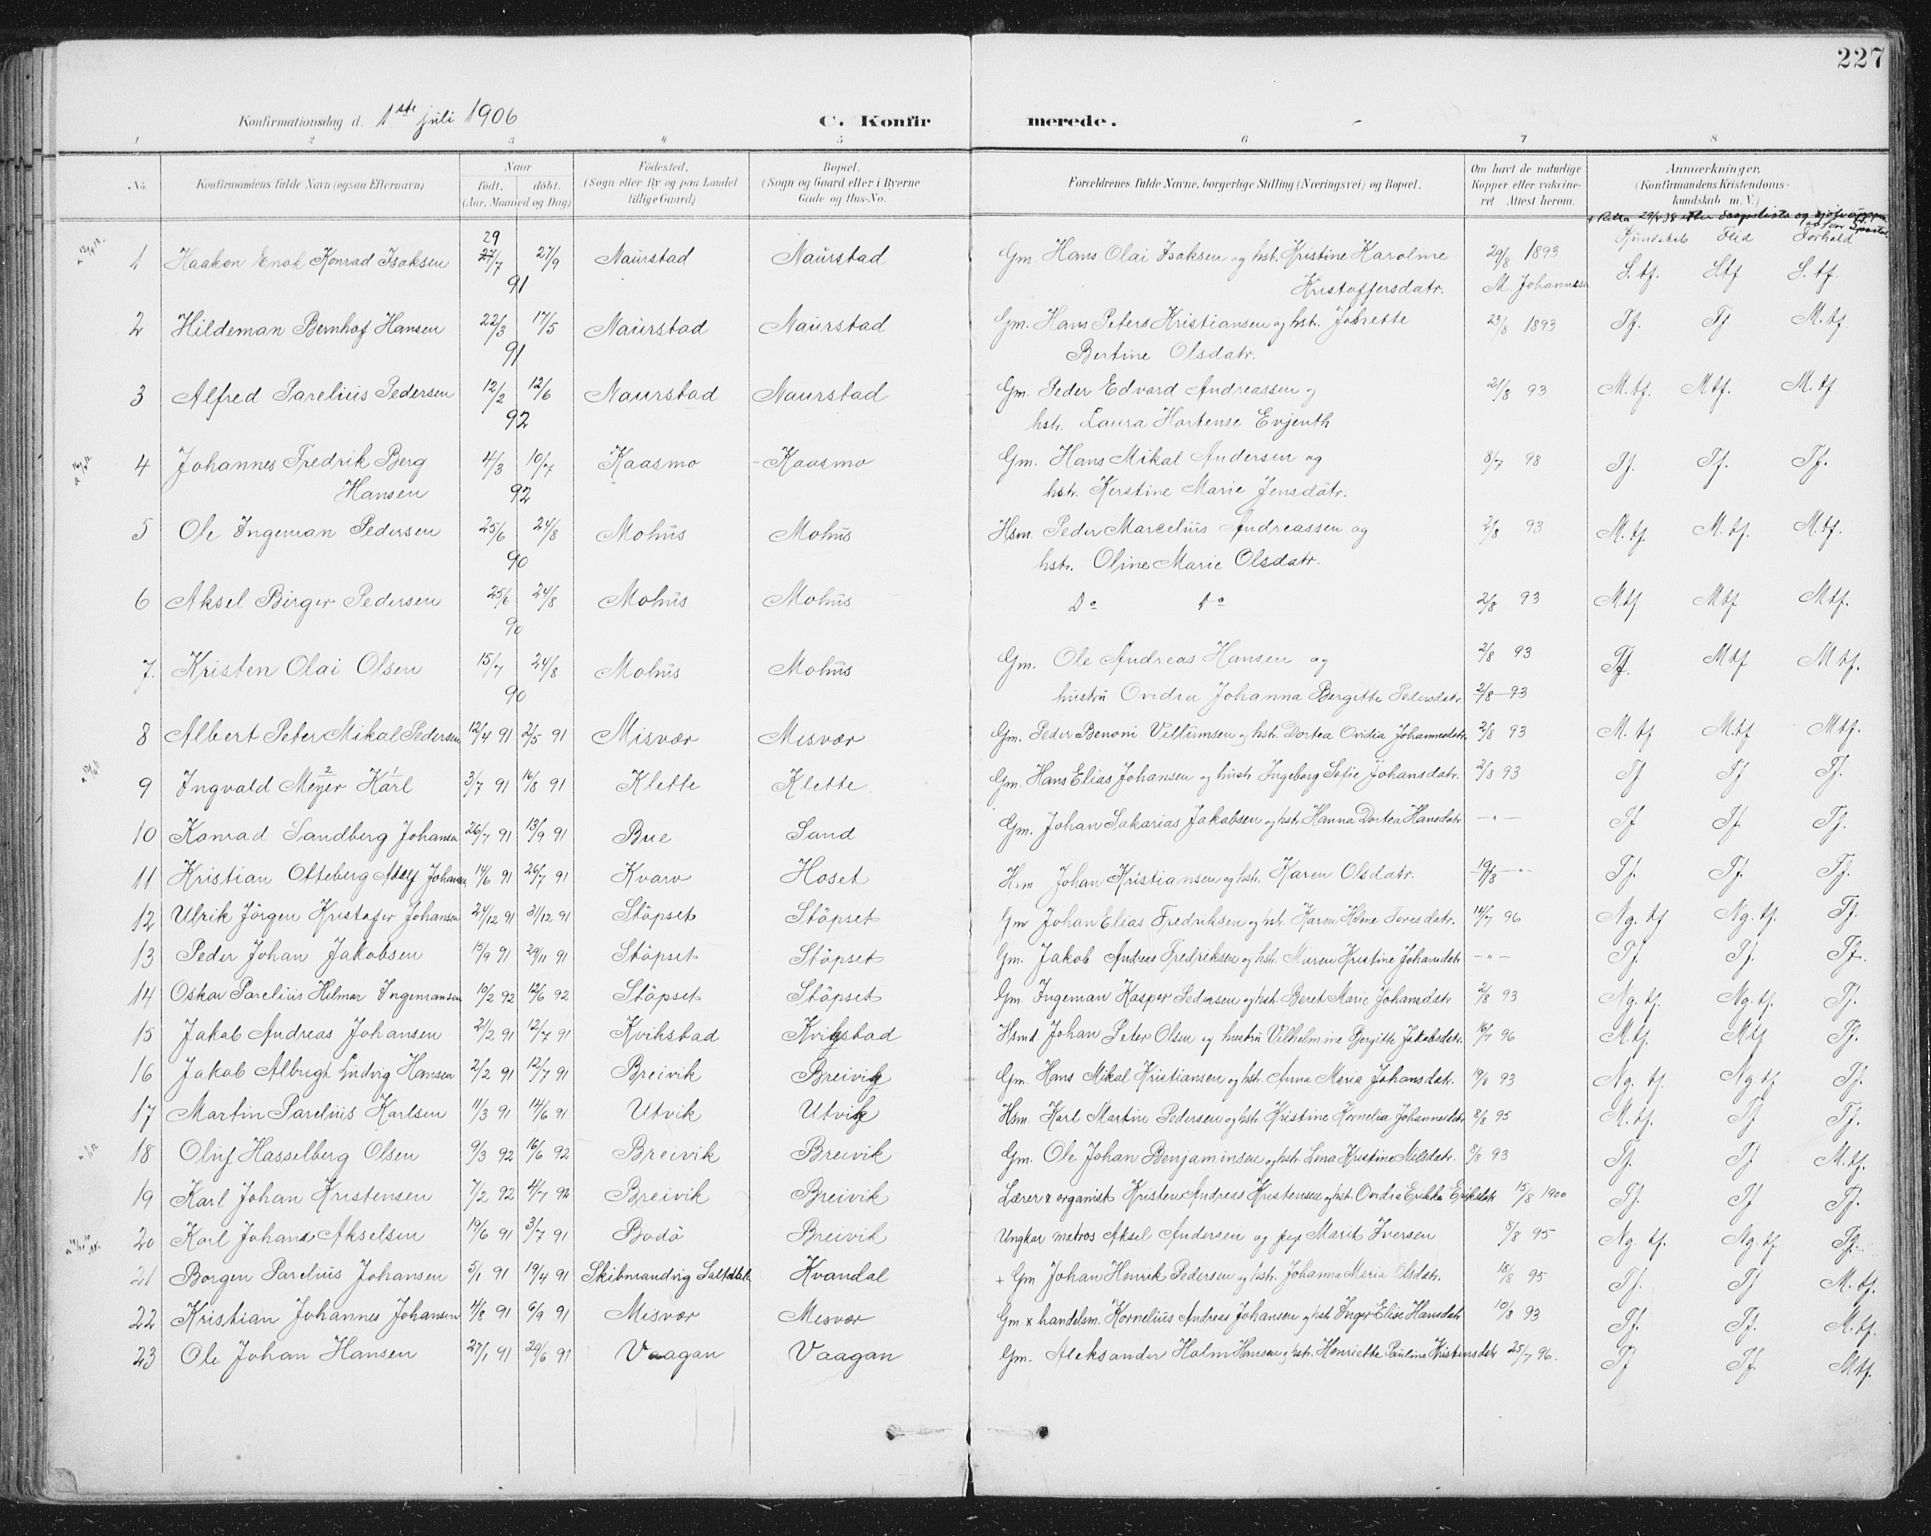 227
Konfirmationsdag d. 1ste juli 1906 C. Konfir merede.
1 2 3 4 5 6 7 8
No. Konfirmandens fulde Navn (ogsaa Efternavn) Naar født. døbt. (Aar, Maaned og Dag) Fødested. (Sogn eller By og paa Landet tillige Gaard) Bopæl. (Sogn og Gaard eller i Byerne Gade og Hus-No. Forældrenes fulde Navne, borgerlige Stilling (Næringsvei) og Bopæl. Om havt de naturlige Kopper eller vakcineret Attest herom. Anmærkninger. (Konfirmandens Kristendomskundskab m. V.)
Kundskab Flid Forhold
29
1 Haakon Enok Konrad Isaksen 27/7 27/9 Naurstad Naurstad Gm. Hans Olai Isaksen og hst. Kristine Karoline 29/8 1893 S. tf. Stf S. tf.
91 Kristoffersdatr. M Johannesen
2 Hildeman Bernhof Hansen 22/3 17/5 Naurstad Naurstad Gm. Hans Peters Kristiansen og hst. Johrette 23/8 1893 Tf. Tf M. tf.
91 Bertine Olsdatr.
3 Alfred Parelius Pedersen 12/2 12/6 Naurstad Naurstad Gm. Peder Edvard Andreassen og 21/8 93 M. tf. Mtf. M. tf
92 hstr. Laura Hortense Evjenth
4 Johannes Fredrik Berg 4/3 10/7 Kaasmo Kaasmo Gm. Hans Mikal Andersen og 8/7 98 Tf. Tf. Tf.
Hansen 92 hstr. Kerstine Marie Jensdatr.
5 Ole Ingeman Pedersen 25/6 24/8 Mohus Mohus Hsm. Peder Marcelius Andreassen og 2/8 93 M. tf. M. tf. M. tf.
90 hstr. Oline Marie Olsdatr.
6 Aksel Birger Pedersen 25/6 24/8 Mohus Mohus Do do 2/8 93 Mtf Mtf Mtf.
90
7. Kristen Olai Olsen 15/7 24/8 Mohus Mohus Gm. Ole Andreas Hansen og 2/8 93 Tf. Mtf Mtf.
90 hustru Ovidia Johanna Bergitte Pedersdatr. 2/8 93
8 Albert Peter Mikal Pedersen 12/4 91 2/5 91 Misvær Misvær Gm. Peder Benoni Villumsen og hst. Dortea Ovidia Johannesdatr. 2/8 93 M. tf M. tf Mtf.
9 Ingvald Meyer Karl 3/7 91 16/8 91 Klette Klette Gm. Hans Elias Johansen og hustr. Ingeborg Sofie Johansdatr. 2/8 93 Tf Tf Tf.
10 Konrad Sandberg Johansen 26/7 91 13/9 91 Bue Sand Gm. Johan Sakarias Jakobsen og hst. Hanna Dortea Hansdatr —"— Tf Tf. Tf.
11 Kristian Otteberg Adolf Johansen 14/6 91 26/7 91 Kvarv Hoset Hsm Johan Kristiansen og hst. Karen Olsdatr. 19/8 —"— Tf. Tf. Tf.
12 Ulrik Jörgen Kristofer Johansen 24/12 91 31/12 91 Stöpset Stöpset Gm Johan Elias Fredriksen og hst. Karen Helene Toresdatr. 14/7 96 Ng. tf Ng. tf. Tf.
13 Peder Johan Jakobsen 13/9 91 29/11 91 Stöpset Stöpset Gm. Jakob Andreas Fredriksen og hst. Maren Kristine Johansdatr —"— Tf. Tf. Tf.
14 Oskar Parelius Hilmar Ingemansen 10/2 92 12/6 92 Stöpset Stöpset Gm. Ingeman Kasper Pedersen og hst. Beret Marie Johansdatr 2/8 93 Ng. tf. Ng. tf. Tf.
15 Jakob Andreas Johansen 21/2 91 12/7 91 Kvikstad Kvikstad Hsmd. Johan Peter Olsen og hustru Vilhelmine Bergitte Jakobsdatr. 16/7 96 M. tf. Mtf Tf.
16 Jakob Albrigt Ludvig Hansen 2/2 91 12/7 91 Breivik Breivik Gm. Hans Mikal Kristiansen og hst. Anna Maria Johansdatr. 19/8 93 Ng. tf Ng tf Tf.
17 Martin Parelius Karlsen 11/3 91 14/6 91 Utvik Utvik Hsm. Karl Martin Pedersen og hst. Kristine Kornelia Johannesdatr 8/8 95 M. tf. Tf Tf.
18 Oluf Hasselberg Olsen 9/3 92 16/6 92 Breivik Breivik Gm. Ole Johan Benjaminsen og hst. Lina Kristine Nilsdatr. 3/8 93 Tf. Tf M. tf.
19 Karl Johan Kristensen 7/2 92 4/7 92 Breivik Breivik Lærer & organist Kristen Andreas Kristensen og hst. Ovidia Erikka Eriksdatr 15/8 1900 Tf. Tf Tf.
20 Karl Johans Akselsen 19/6 91 3/7 91 Bodö Breivik Ungkar matros Aksel Andersen og pige Marit Iversen 8/8 95 Ng. tf. Ng. tf Tf.
21 Borgen Parelius Johansen 5/1 91 19/4 91 Skibmandvig Saltdalen Kvandal + Gm Johan Henrik Pedersen og hst. Johanna Maria Olsdatr. 18/8 95 Tf. Tf M. tf.
22 Kristian Johannes Johansen 4/8 91 6/9 91 Misvær Misvær Gm & handelsm. Kornelius Andreas Johansen og hst Inger Elise Hansdatr 10/8 93 Tf. Tf. M. tf.
23 Ole Johan Hansen 27/1 91 29/6 91 Vaagan Vaagan Gm. Aleksander Holm Hansen og hst. Henriette Pauline Kristensdatr 25/7 96. Tf Tf. Mtf.